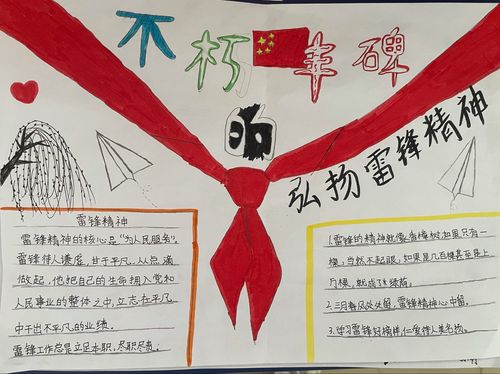 不朽丰碑
的
弘扬雷锋精神
雷锋精神
雷锋精神的核心是“为人民服务”，
雷锋待人谦虚，甘于平凡，从点滴
做起，他把自己的生命拥入党和
人民事业的整体之中，立志在平凡
中干出不平凡的业绩。
雷锋工作总是立足本职，尽职尽责；
1.雷锋的精神就像香樟树，如果只有一
棵，当然不起眼，如果是几百棵甚至是上
万棵，就成了绿荫。
2.三月春风处处留，雷锋精神心中留，
3.学习雷锋好榜样，仁爱待人美名扬。